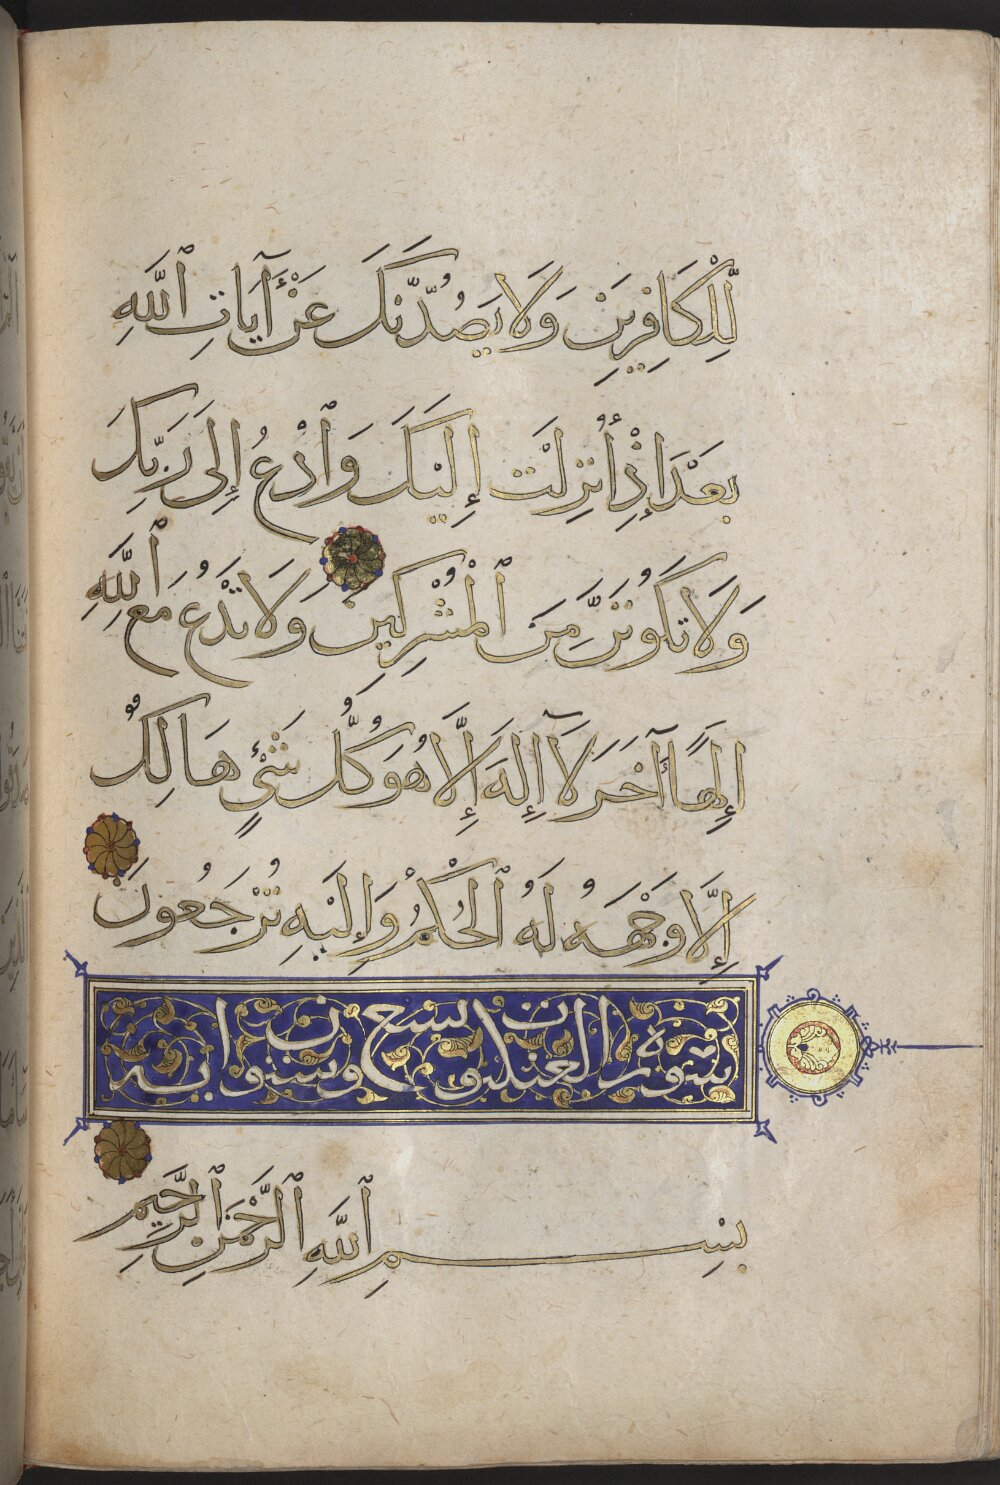 لِّلْكَافِرِينَ وَلَا يَصُدُّنَّكَ عَنْ آيَاتِ ٱللَّهِ
بَعْدَ إِذْ أُنزِلَتْ إِلَيْكَ وَٱدْعُ إِلَى رَبِّكَ
وَلَا تَكُونَنَّ مِنَ ٱلْمُشْرِكِينَ وَلَا تَدْعُ مَعَ ٱللَّهِ
إِلَهًا آخَرَ لَآ إِلَهَ إِلَّا هُوَ كُلُّ شَيْءٍ هَالِكٌ
إِلَّا وَجْهَهُ لَهُ ٱلْحُكْمُ وَإِلَيْهِ تُرْجَعُونَ
سورة العنكبوت تسع وستون اية
بِسْمِ ٱللَّهِ ٱلرَّحْمَنِ ٱلرَّحِيمِ